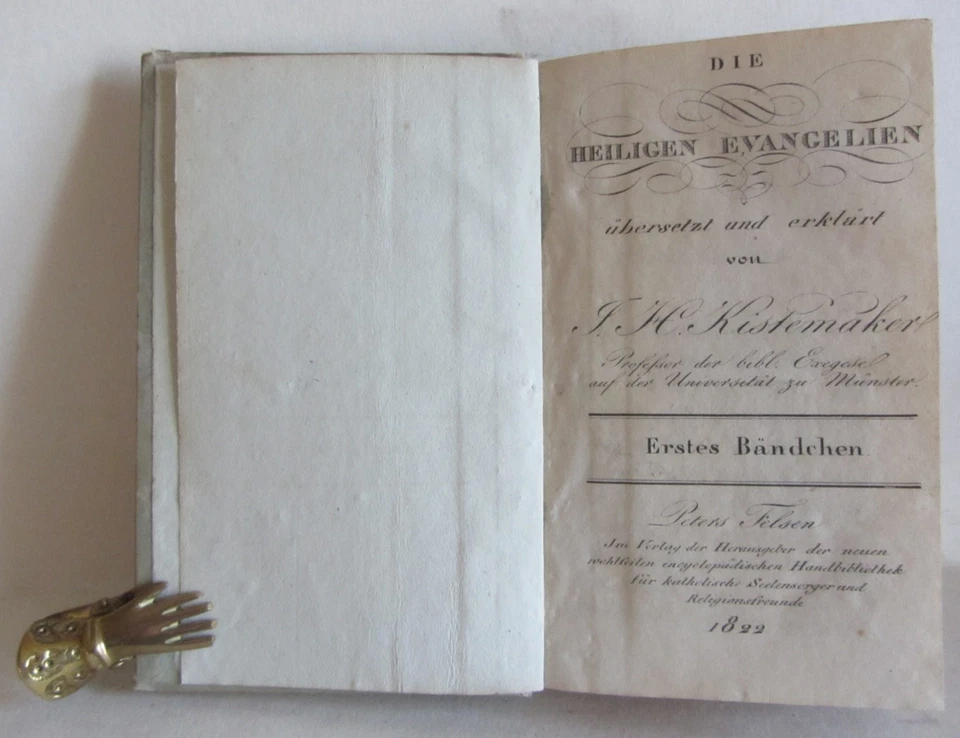 DIE
HEILIGEN EVANGELIEN
übersetzt und erklärt
von
J. H. Kistemaker
Professer der bibl. Exegese
auf der Universität zu Münster.
Erstes Bändchen
Peters Felsen
Im Verlag der Herausgeber der neuen
wohlfeilen encyclopädischen Handbibliothek
für katholische Seelensorger und
Religionsfreunde
1822